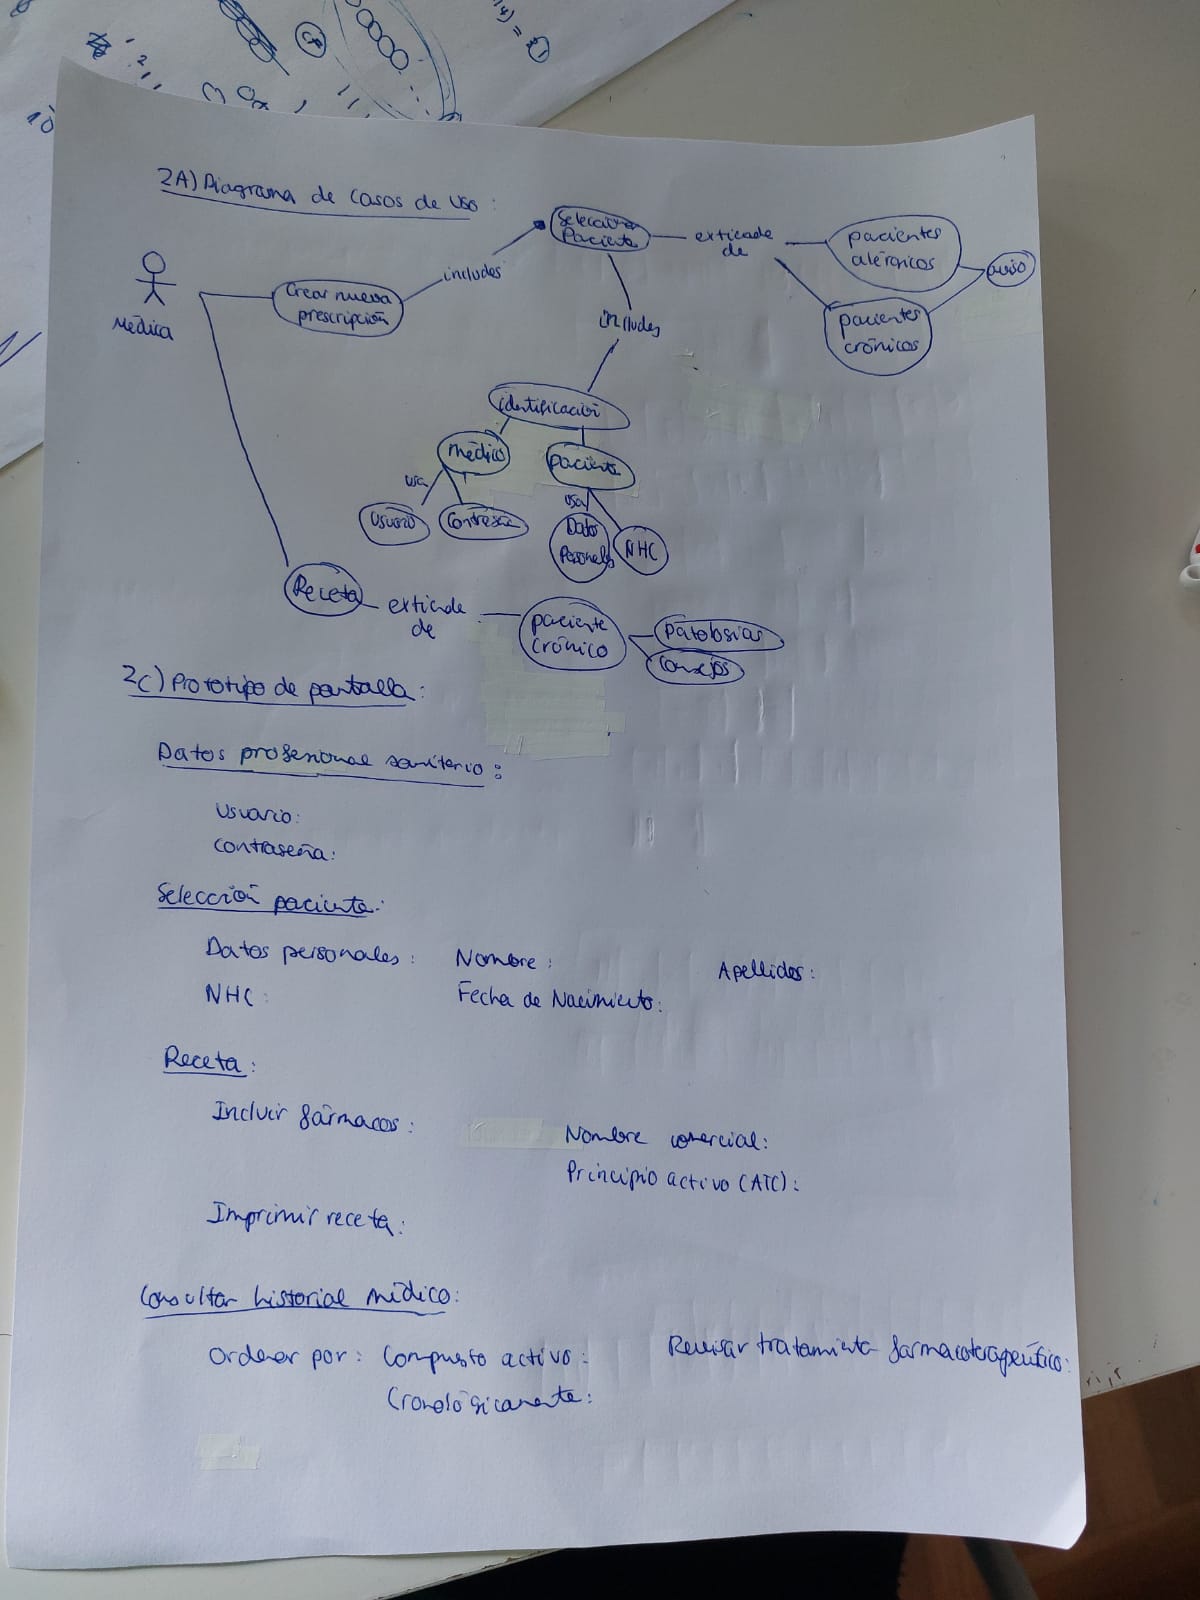 14) = 21
CF
10
2A) Diagrama de casos de uso:
Médica
Crear nueva
prescripción
includes
Selección
Paciente
extiende
de
pacientes
alérgicos
pacientes
crónicos
aviso
includes
identificación
médico
paciente
usa
usuario
contraseña
usa
Datos
Personales
NHC
Receta
extiende
de
paciente
crónico
patologías
consejos
2C) Prototipo de pantalla:
Datos profesional sanitario:
Usuario:
Contraseña:
Selección paciente:
Datos personales: Nombre: Apellidos:
NHC: Fecha de Nacimiento:
Receta:
Incluir fármacos: Nombre comercial:
Principio activo (ATC):
Imprimir receta:
Consultar historial médico:
Ordenar por: Compuesto activo: Revisar tratamiento farmacoterapéutico:
Cronológicamente: